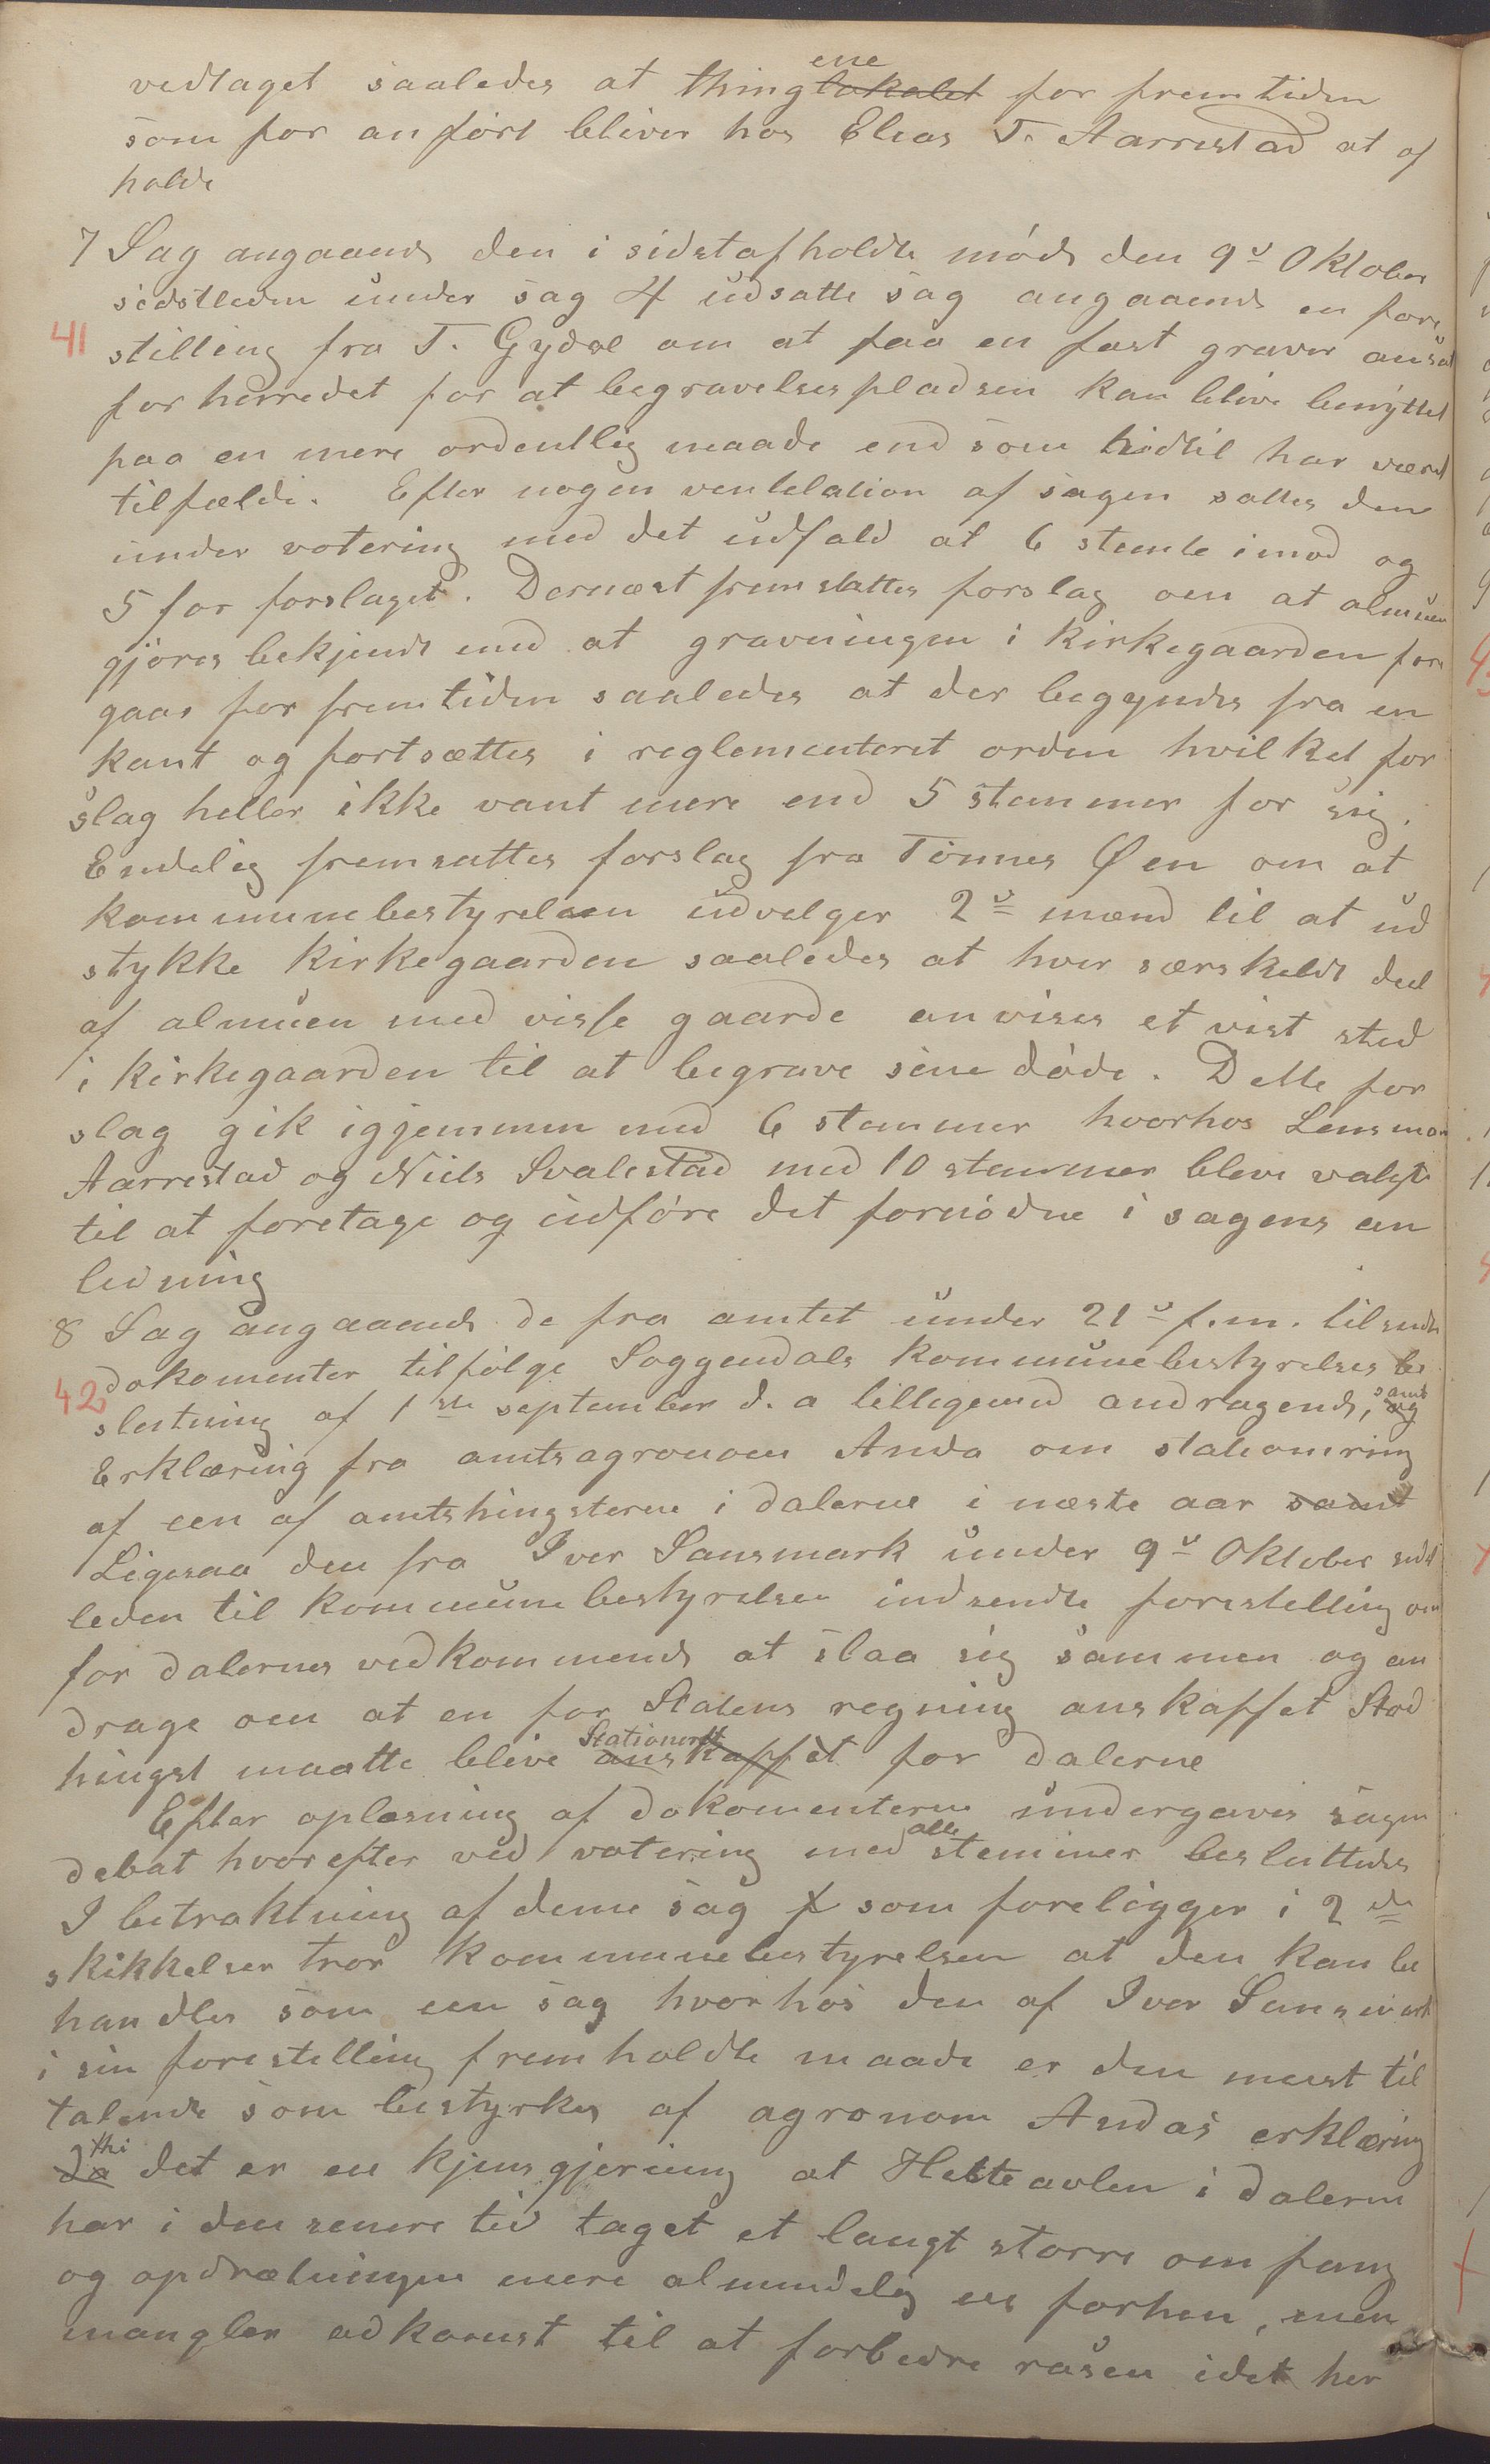 vedtaget saaledes at thinglokalet ene for fremtiden
som for anført bliver hos Elias T. Aarrestad at af
holde
7 Sag angaaende den i sidstafholdte møde den 9de Oktober
sidstleden under sag 4 udsatte sag angaaende en fore
41 stilling fra T. Gydal om at faa en fast graver ansat
for herredet for at begravelsespladsen kan blive benyttet
paa en mere ordentlig maade end som hidtil har været
tilfælde. Efter nogen ventelation af sagen sattes den
under votering med det udfald at 6 stemte imod og
5 for forslaget. Dernæst fremsattes forslag om at almuen
gjøres bekjendt med at gravningen i Kirkegaarden fore
gaar for fremtiden saaledes at der begyndes fra en
kant og fortsættes i reglementeret orden hvilket for
slag heller ikke vant mere end 5 stemmer for sig.
Endelig fremsattes forslag fra Tønnes Øen om at
kommunebestyrelsen udvelger 2de mænd til at ud
stykke Kirkegaarden saaledes at hver særskeldt deel
af almuen med visse gaarde anvises et vist sted
i kirkegaarden til at begrave sine døde. Dette for
slag gik igjennem med 6 stemmer hvorhos Lensman
Aarrestad og Niels Svalestad med 10 stemmer bleve valgte
til at foretage og udføre det fornødne i sagens an
ledning
8 Sag angaaende de fra amtet under 21de f.m. tilsendte
dokomenter tilfølge Soggendals kommunebestyrelses be
42 slutning af 1ste september d. a tilligemed andragende, og samt
Erklæring fra amtsagronom Anda om stationering
af een af amtshingsterne i dalerne i næste aar samt
Ligesaa den fra Iver Sansmark under 9de Oktober sidst
leden til kommunebestyrelsen indsendte forestelling om
for dalernes vedkommende at slaa sig sammen og an
drage om at en for Statens regning anskaffet Stod
hingst maatte blive anskaffet Stationeret for dalerne
Efter oplæsning af dokomenterne undergaves sagen
debat hvorefter ved votering med alle stemmer besluttedes
I betraktning af denne sag som foreligger i 2de
skikkelser tror kommunebestyrelsen at den kan be
handles som een sag hvorhos den af Iver Sansmark
i sin forestelling fremholdte maade er den mest til
talende som bestyrkes af agronom Andas erklæring
da thi det er en kjensgjerning at Hesteavlen i dalerne
har i den senere tid taget et langt større omfang
og opdrætningen mere almindelig en forhen, men
mangler adkomst til at forbedre rasen idet her